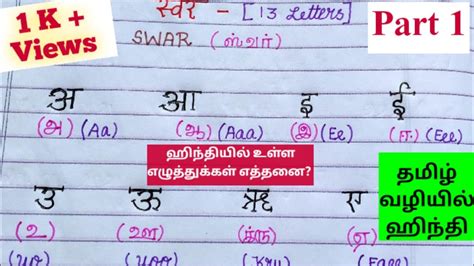 1 K +
Views
स्वर - [13 Letters]
SWAR (ஸ்வர்)
Part 1
अ आ इ ई
(அ) (Aa) (ஆ) (Aaa) (இ) (Ee) (ஈ) (Eee)
ஹிந்தியில் உள்ள
எழுத்துக்கள் எத்தனை?
தமிழ்
வழியில்
ஹிந்தி
उ ऊ ऋ ए
(உ) (ஊ) (க்ரு) (ஏ)